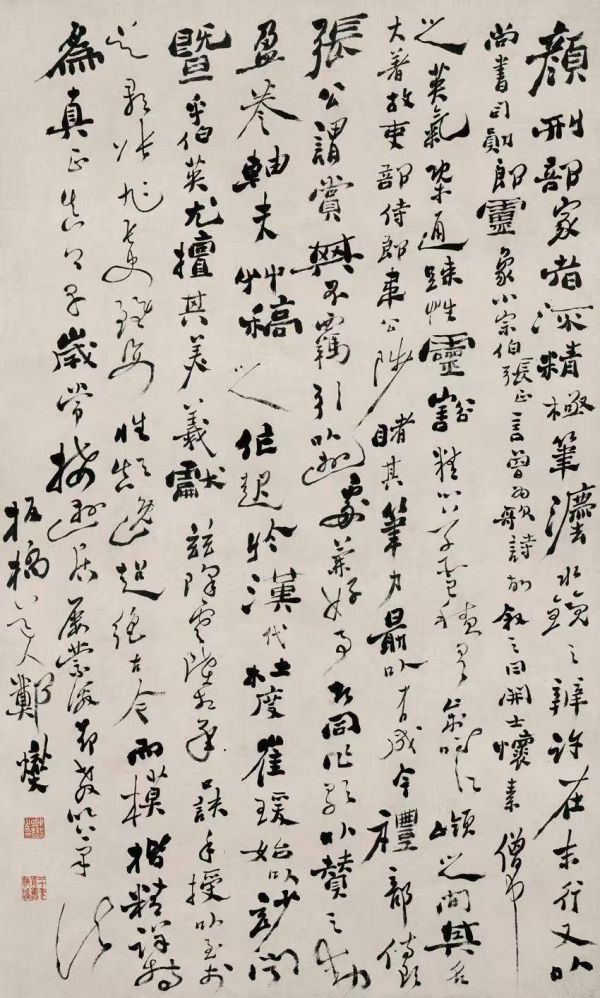 顏刑部家者流精極筆法水鏡之辨許在末行又以
尚書司勛郎靈象小宗伯張正言曾為歌詩故叙之曰開士懷素僧中
之英氣概通疎性靈豁精心草聖積有歲時江嶺之間其名
大著故吏部侍郎韋公陟睹其筆力勗以有成今禮部侍郎
張公謂賞其不羈引以遊處兼好事者同作歌以贊之動
盈卷軸夫艸稿之作起於漢代杜度崔瑗始以妙聞
暨乎伯英尤擅其美羲獻茲降虞陸相承口訣手授以至於
吳郡張旭長史雖姿性顛逸超絕古今而模楷精詳特
為真正真卿早歲常接遊居屢蒙激勸教以筆法
板橋道人鄭燮